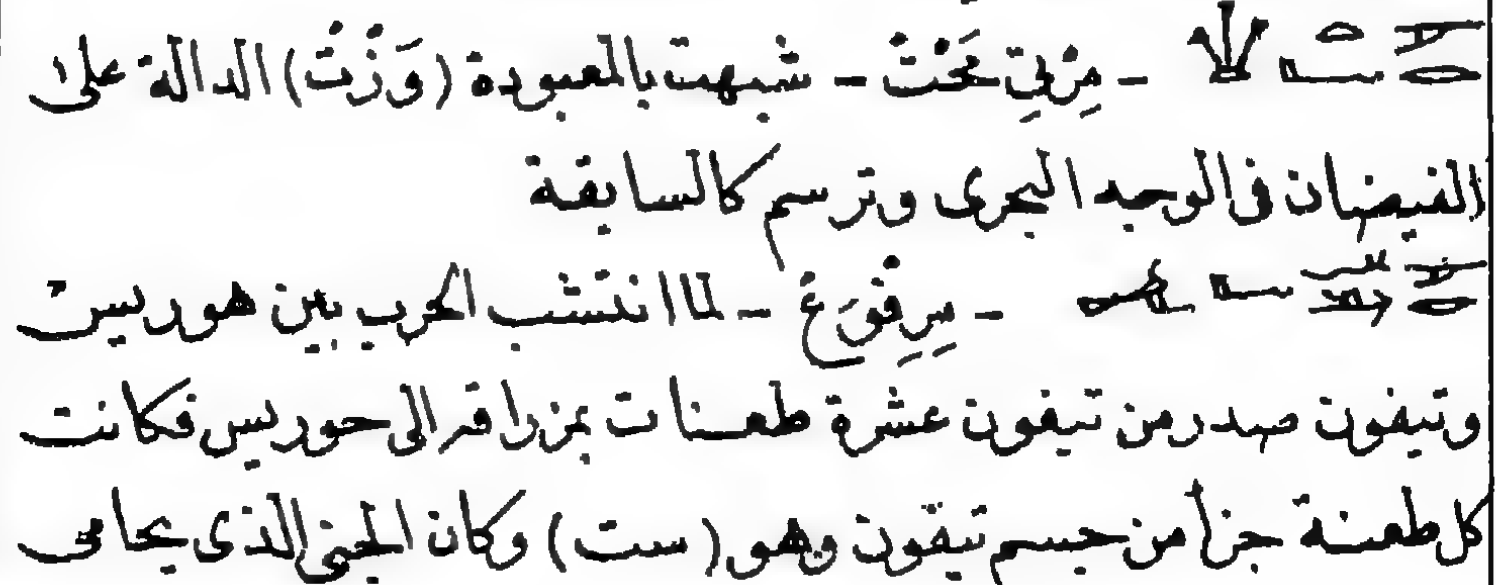 - مِرْتِي مَحْتْ - شبهت بالمعبودة (وَزْتْ) الدالة على
الفيضان فى الوجه البحرى وترسم كالسابقة
- مِرِفْوَعْ - لما انتشب الحرب بين هوريس
وتيفون صدر من تيفون عشرة طعنات بمزراقه الى حوريس فكانت
كل طعنة جزأ من جسم تيفون وهو (ست) وكان الجنى الذى يحامى